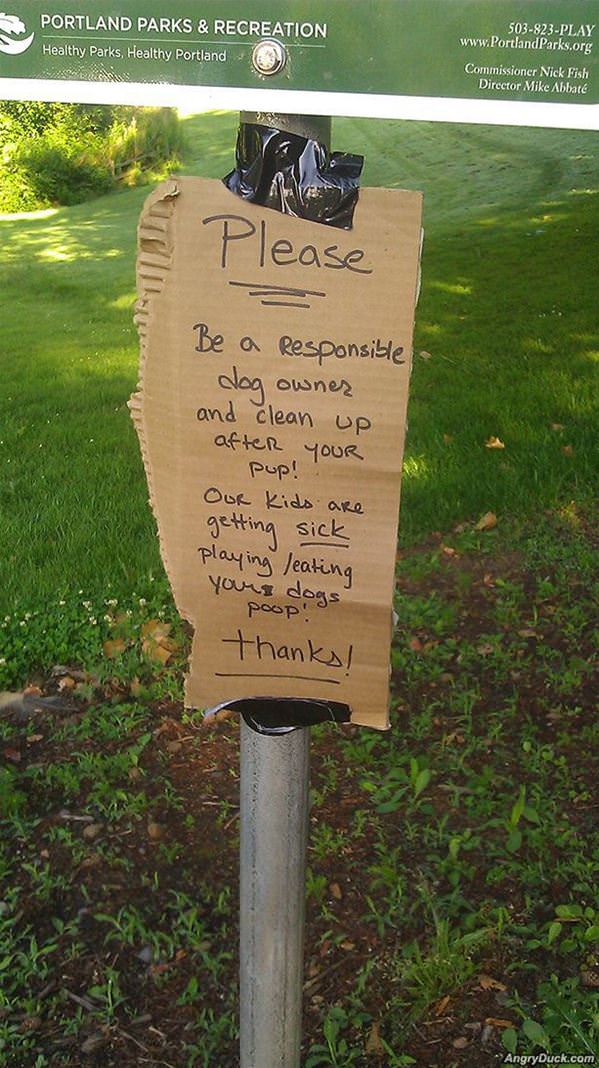 PORTLAND PARKS & RECREATION
Healthy Parks, Healthy Portland
503-823-PLAY
www.PortlandParks.org
Commissioner Nick Fish
Director Mike Abbaté
Please
Be a Responsible
dog owner
and clean up
after your
pup!
Our Kids are
getting sick
playing/eating
yours dogs
poop!
thanks!
AngryDuck.com